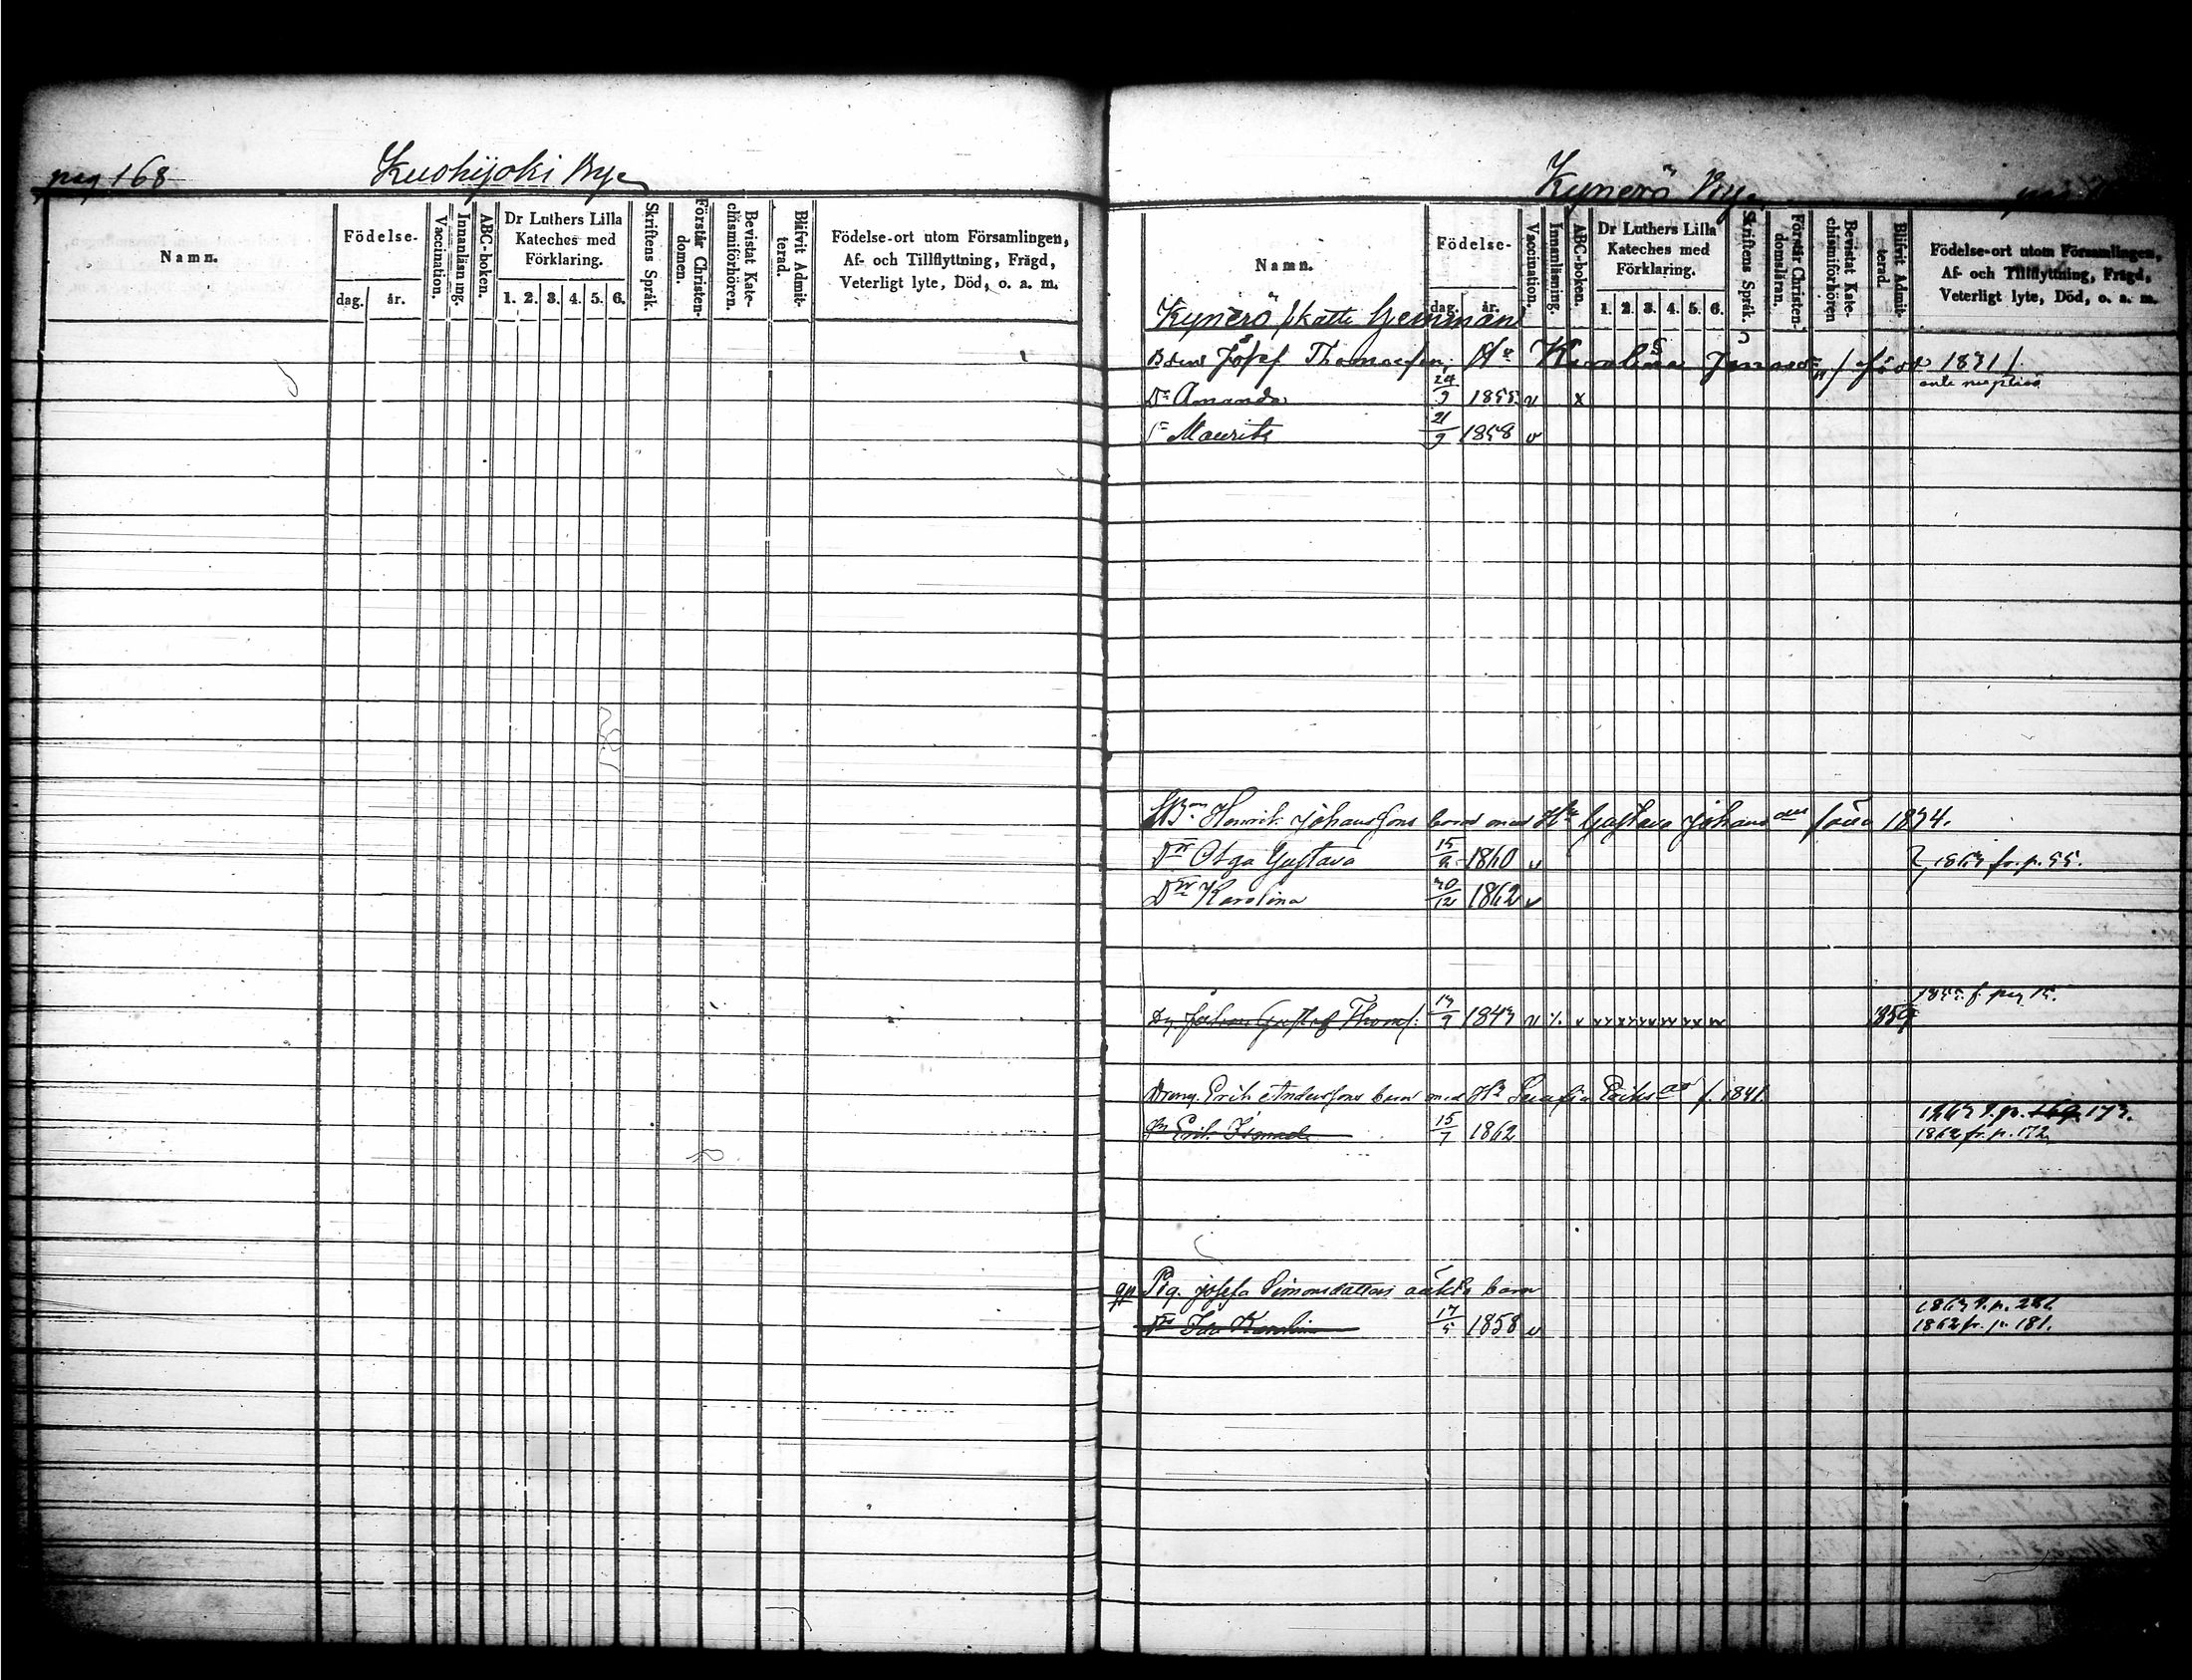 pag 168 Kuohijoki By
Namn.
Födelse-
dag. år.
Vaccination.
Innanläsning.
ABC-boken.
Dr Luthers Lilla Kateches med Förklaring.
1. 2. 3. 4. 5. 6.
Skriftens Språk.
Förstår Christendomen.
Bevistat Katechismiförhören.
Blifvit Admitterad.
Födelse-ort utom Församlingen,
Af- och Tillflyttning, Frägd,
Veterligt lyte, Död, o. a. m.
Kynerö By
Namn.
Födelse-
dag. år.
Vaccination.
Innanläsning.
ABC-boken.
Dr Luthers Lilla Kateches med Förklaring.
1. 2. 3. 4. 5. 6.
Skriftens Språk.
Förstår Christendomsläran.
Bevistat Katechismiförhören
Blifvit Admitterad.
Födelse-ort utom Församlingen,
Af- och Tillflyttning, Frägd,
Veterligt lyte, Död, o. a. m.
Kynerö skatte hemman
Josef Thomasson Hu Karolina född 1831
Dr Amanda 9 1855 v x
Sn Maurits 21/9 1858 v
Henrik Johanssons barn med Hu Gustava Johansdr född 1834.
Dr Olga Gustava 15 1860 v 1863 fr. p. 55.
Dr Karolina 20/12 1862 v
Johan Gustaf Thoms. 9 1843 v 1859
Dräng. Erik Anderssons barn med Hu Serafia Eriksdr f. 1841.
Sn Erik 15/7 1862 1863 t. p. 169 173.
1862 fr. p. 172
Pig. Josefa Simonsdotters oäkta barn
Dr Ida Karolina 17/5 1858 v
1862 fr. p. 181.